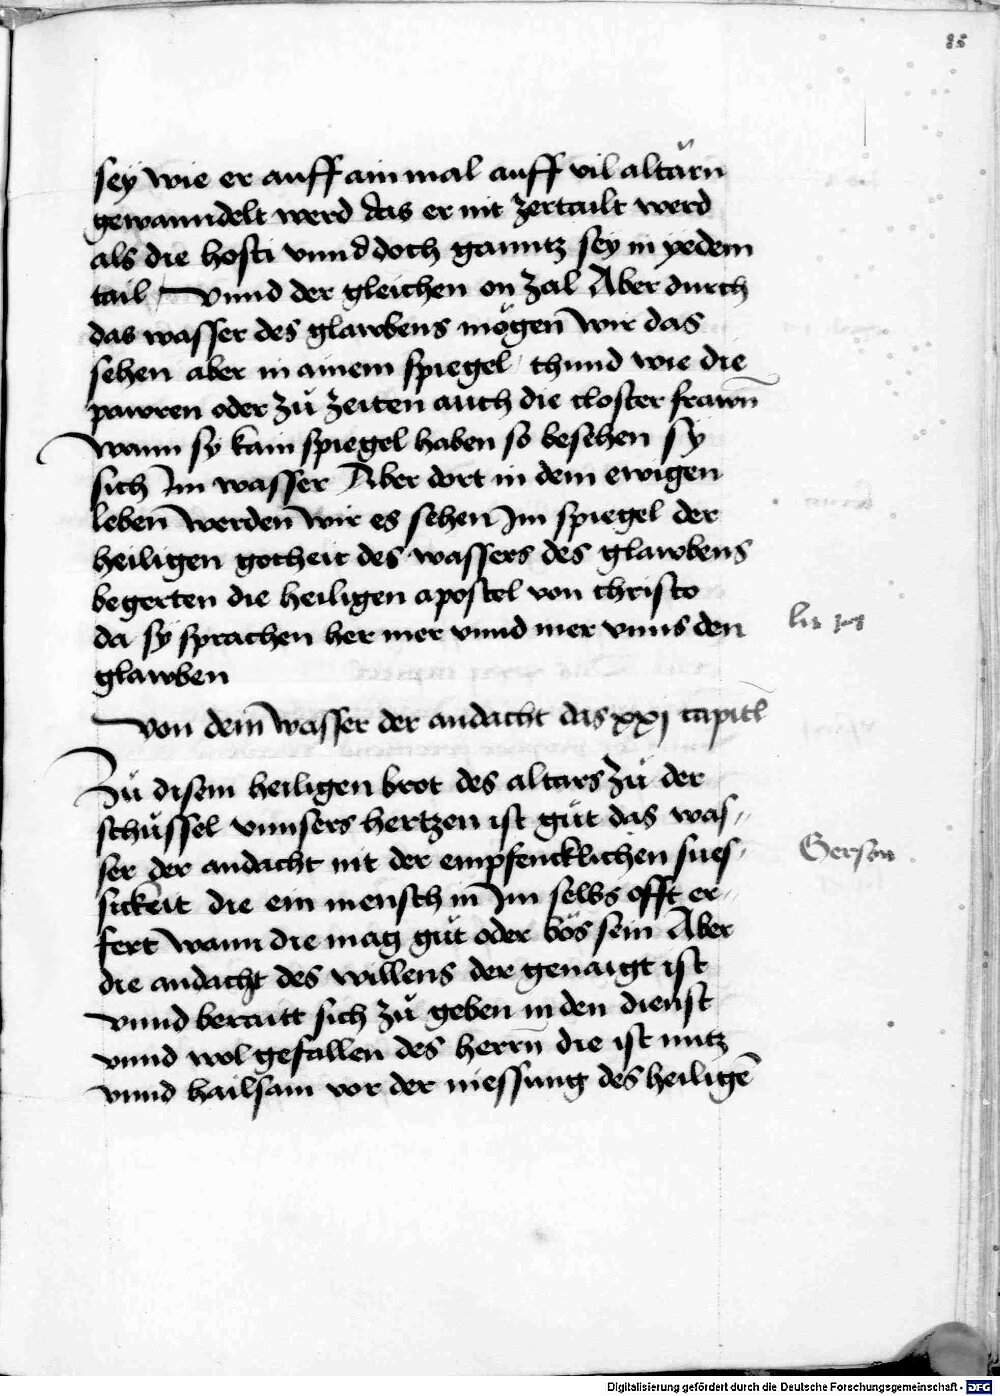 85
sey wie er auff ain mal auff vil altärn
gewanndelt werd das er nit zertailt werd
als die hosti vnnd doch ganntz sey in yedem
tail / vnnd der gleichen on zal Aber durch
das wasser des glawbens mögen wir das
sehen aber in ainem spiegel / thund wie die
pawren oder zů zeiten auch die closter frawn̄
wann sy kain spiegel haben so besehen sy
sich Im wasser Aber dort in dem ewigen
leben werden wir es sehen Im spiegel der
heiligen gotheit des wassers des glawbens
begerten die heiligen apostel von christo
da sy sprachen her mer vnnd mer vnns den
glawben
von dem wasser der andacht das xxj capitl
Zů disem heiligen brot des altars zů der
schüssel vnnsers hertzen ist gůt das was-
ser der andacht nit der empfencklichen sues-
sickeit die ein mensch in Im selbs offt er-
fert wann die mag gůt oder bös sein Aber
die andacht des willens der genaigt ist
vnnd beraitt sich zů geben in den dienst
vnnd wol gefallen des herrn̄ die ist nutz
vnnd hailsam vor der niessung des heiligē
Gerson
Digitalisierung gefördert durch die Deutsche Forschungsgemeinschaft - DFG